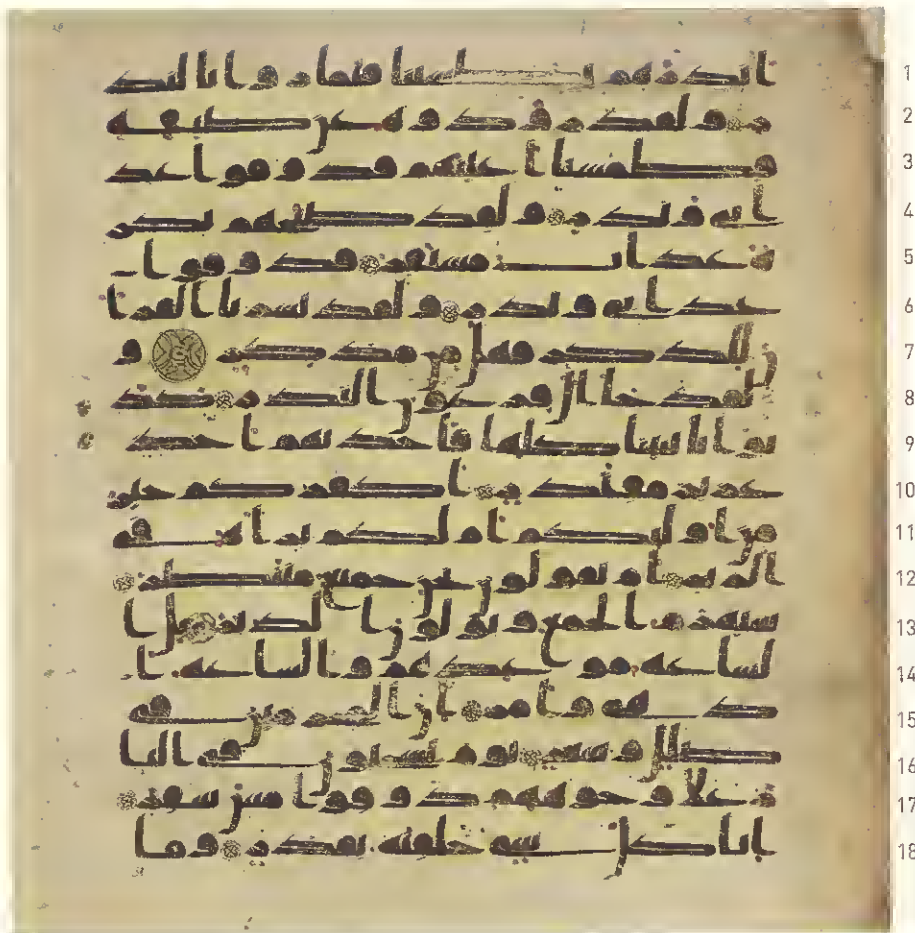 انذرهم بطشتنا فتماروا بالنذ
ر ولقد رودوه عن ضيفه
فطمسنا اعينهم فذوقوا عذ
ابي ونذر ولقد صبحهم بكر
ة عذاب مستقر فذوقوا
عذابي ونذر ولقد يسرنا القرا
ن للذكر فهل من مدكر و
لقد جا ال فرعون النذر كذ
بوا بايتنا كلها فاخذنهم اخذ
عزيز مقتدر اكفركم خير
من اوليكم ام لكم براة في
الزبر ام يقولون نحن جميع منتصر
سيهزم الجمع ويولون الدبر بل ا
لساعة موعدهم والساعة ا
دهى وامر ان المجرمين في
ضلل وسعر يوم يسحبون في النا
ر على وجوههم ذوقوا مس سقر
انا كل شي خلقنه بقدر وما
1
2
3
4
5
6
7
8
9
10
11
12
13
14
15
16
17
18